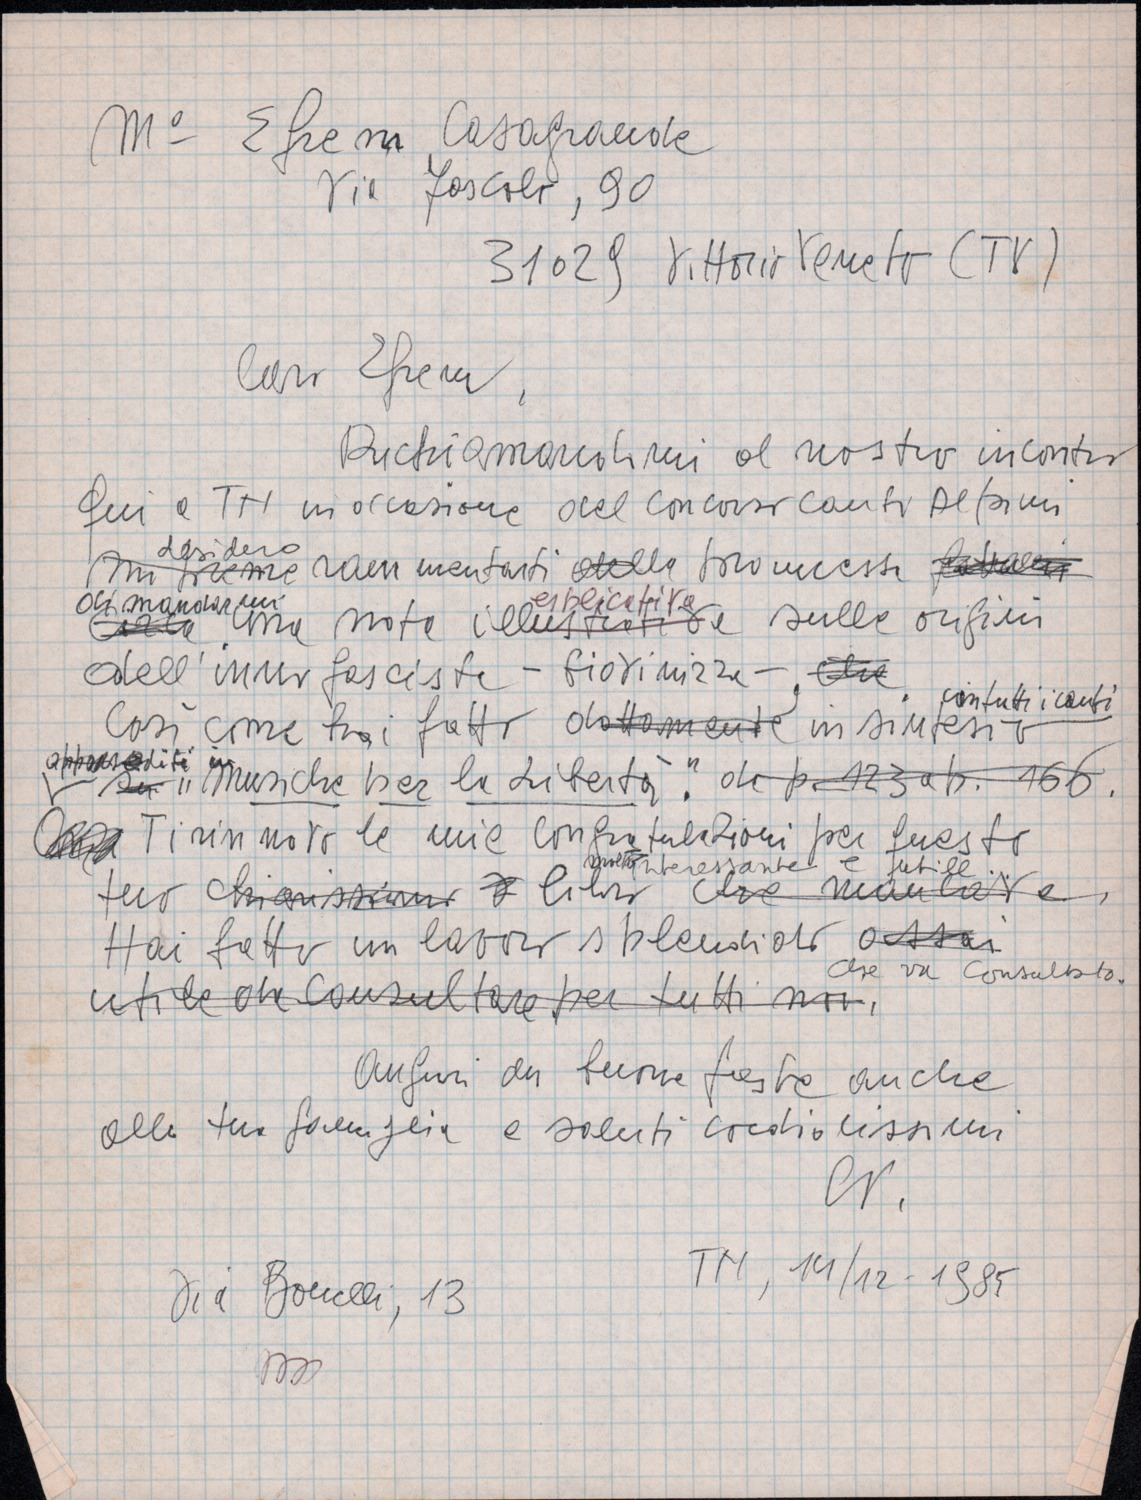 Mº Efrem Casagrande
Via Foscolo, 90
31029 Vittorio Veneto (TV)
Caro Efrem,
Richiamandomi al nostro incontro
qui a TN in occasione del concorso canti Alpini
desidero
mi preme rammentarti della promessa fattami
di mandarmi esplicativa
circa una nota illustrativa sulle origini
dell'inno fascista - Giovinezza -, che
con tutti i canti
Così come hai fatto dottamente in sintesi
in
su "Musiche per la Libertà". da p. 123 a p. 166.
Ti rinnovo le mie congratulazioni per questo
molto interessante e utile
tuo chiarissimo libro che mancava,
Hai fatto un lavoro splendido assai
che va consultato.
utile da consultare per tutti noi.
Auguri di buone feste anche
alla tua famiglia e saluti cordialissimi
CV.
TN, 14/12-1985
Via Bonelli, 13